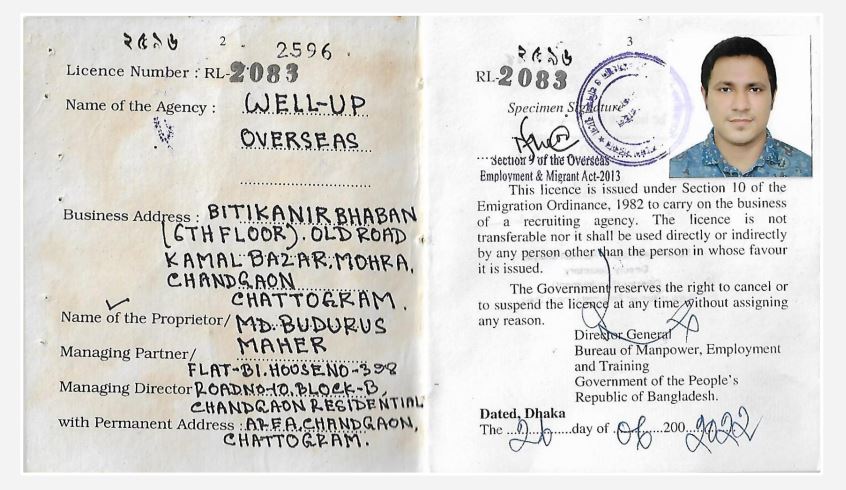 ২৫৯৬ 2 2596
Licence Number : RL-2083
Name of the Agency : WELL-UP
OVERSEAS
Business Address : BITIKANIR BHABAN
(6TH FLOOR). OLD ROAD
KAMAL BAZAR, MOHRA,
CHANDGAON
CHATTOGRAM.
Name of the Proprietor/ MD. BUDURUS
MAHER
Managing Partner/
FLAT-B1. HOOSE NO-398
Managing Director ROAD NO-10. BLOCK-B,
CHANDGAON RESIDENTIAL
with Permanent Address : AREA, CHANDGAON,
CHATTOGRAM.
২৫৯৬ 3
RL-2083
Specimen Signature
Section 9 of the Overseas
Employment & Migrant Act-2013
This licence is issued under Section 10 of the
Emigration Ordinance, 1982 to carry on the business
of a recruiting agency. The licence is not
transferable nor it shall be used directly or indirectly
by any person other than the person in whose favour
it is issued.
The Government reserves the right to cancel or
to suspend the licence at any time without assigning
any reason.
Director General
Bureau of Manpower, Employment
and Training
Government of the People's
Republic of Bangladesh.
Dated, Dhaka
The 26 day of 06 200 2022